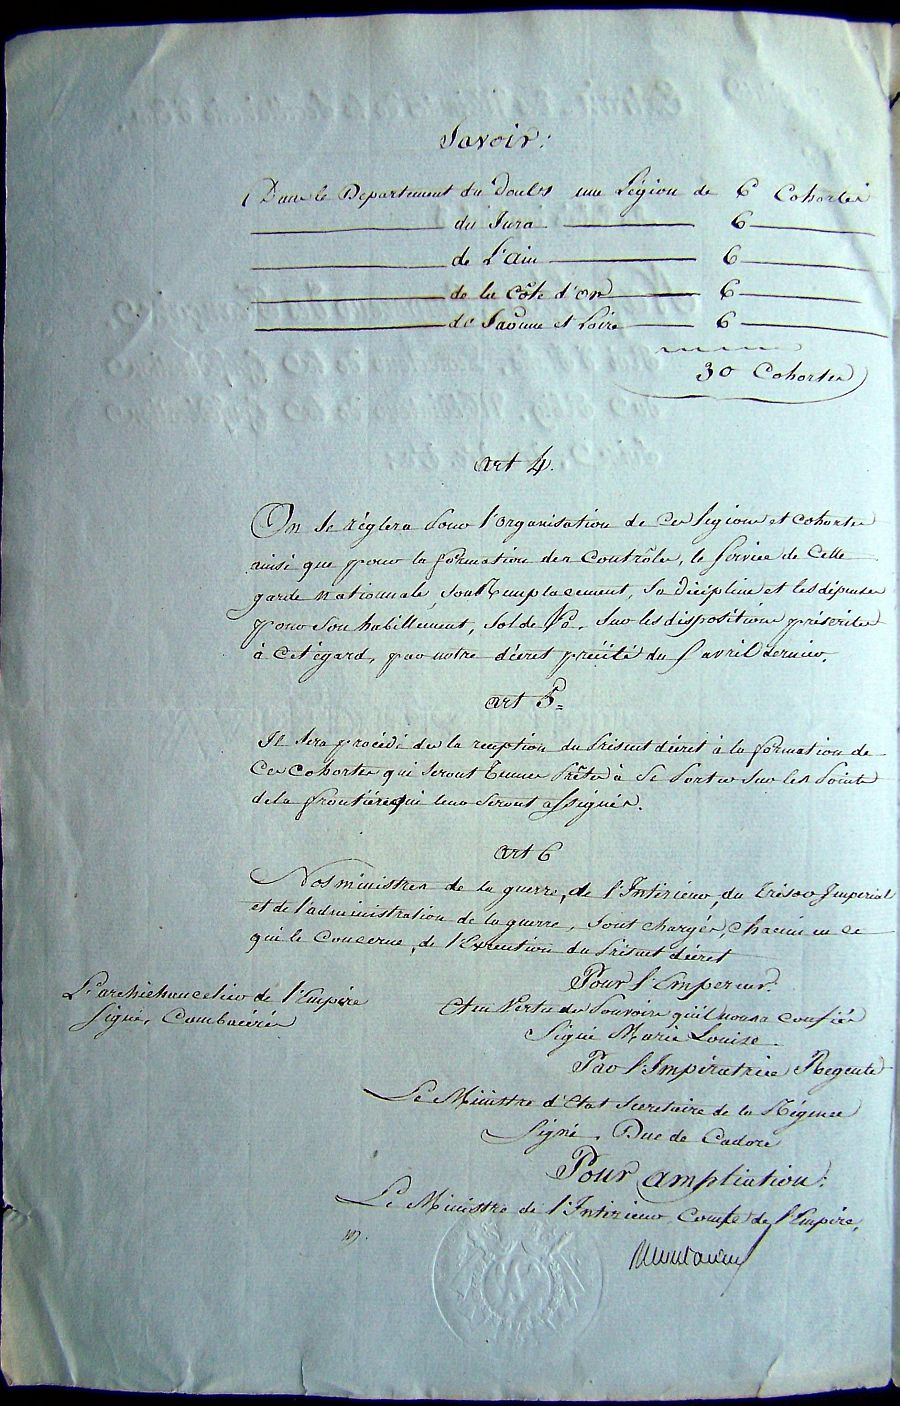 Savoir :
Dans le Département du Doubs une Légion de 6 Cohortes
du Jura 6
de l'Ain 6
de la Côte d'or 6
de Saône et Loire 6
30 Cohortes
art 4.
On se réglera pour l'organisation de ces legions et cohortes
ainsi que pour la formation des Contrôles, le service de cette
garde nationnale, son Emplacement, sa dicipline et les dépenses
pour son habillement, solde &a. sur les dispositions préscrites
à cet égard, par notre décret précité du 5 avril dernier.
art 5 =
Il sera procédé dès la reception du présent décret à la formation de
Ces cohortes qui seront Tenues prêtes à se porter sur les points
de la frontière qui leur seront assignés.
art 6
Nos ministres de la guerre, de l'Intérieur, du Trésor Imperial
et de l'administration de la guerre, sont chargés, chacun en ce
qui le Concerne, de l'Exécution du présent décret
Pour l'Empereur
Et en Vertu des Pouvoirs qu'il nous a confiés
Signé Marie Louise
Par l'Impératrice Regente
Le Ministre d'Etat Secretaire de la Régence
Signé, Duc de Cadore
L'archichancelier de l'Empire
Signé, Cambacérès
Pour ampliation :
Le Ministre de l'Intérieur, Comte de l'Empire,
Montalivet